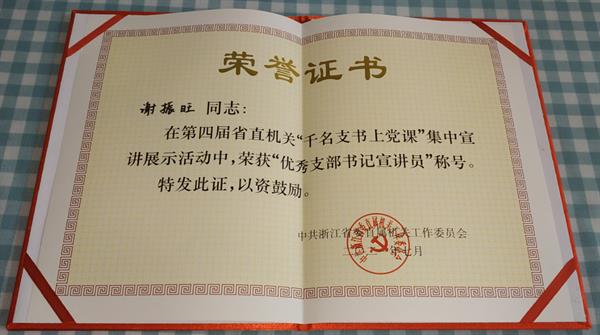 荣誉证书
谢振旺 同志：
在第四届省直机关“千名支书上党课”集中宣
讲展示活动中，荣获“优秀支部书记宣讲员”称号。
特发此证，以资鼓励。
中共浙江省直属机关工作委员会
七月